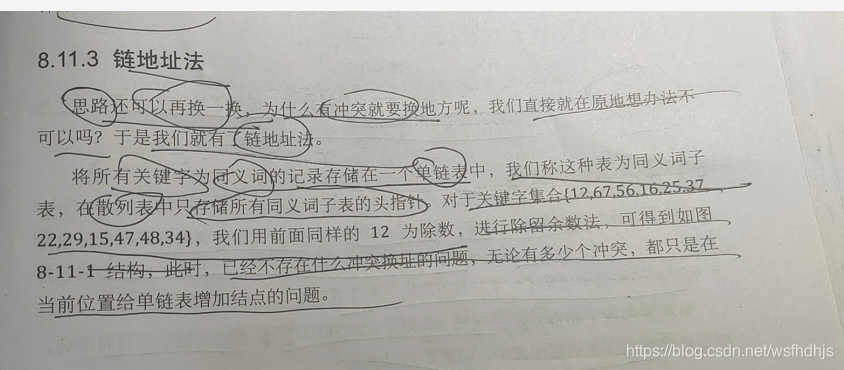 8.11.3 链地址法
思路还可以再换一换，为什么有冲突就要换地方呢，我们直接就在原地想办法不
可以吗？于是我们就有了链地址法。
将所有关键字为同义词的记录存储在一个单链表中，我们称这种表为同义词子
表，在散列表中只存储所有同义词子表的头指针。对于关键字集合{12,67,56,16,25,37,
22,29,15,47,48,34}，我们用前面同样的 12 为除数，进行除留余数法，可得到如图
8-11-1 结构，此时，已经不存在什么冲突换址的问题，无论有多少个冲突，都只是在
当前位置给单链表增加结点的问题。
https://blog.csdn.net/wsfhdhjs